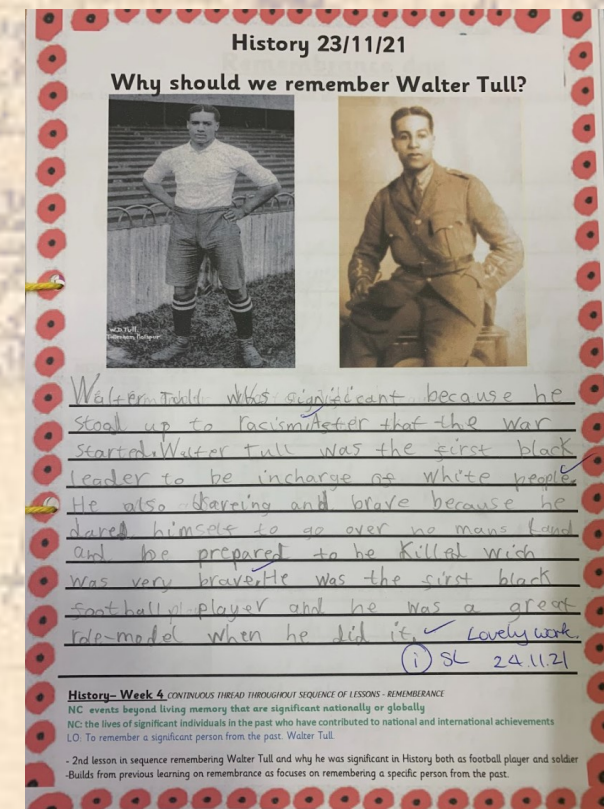 History 23/11/21
Why should we remember Walter Tull?
W.D. Tull
Tottenham Hotspur
Walter Tull was significant because he
stood up to racism. After that the war
started. Walter tull was the first black
leader to be incharge of white people.
He also and brave because he
dared himself to go over no mans land
and be prepared to be Killed wich
was very brave. He was the first black
football player and he was a great
role-model when he did it. Lovely work.
i SL 24.11.21
History- Week 4 CONTINUOUS THREAD THROUGHOUT SEQUENCE OF LESSONS - REMEMBERANCE
NC events beyond living memory that are significant nationally or globally
NC: the lives of significant individuals in the past who have contributed to national and international achievements
LO: To remember a significant person from the past. Walter Tull.
- 2nd lesson in sequence remembering Walter Tull and why he was significant in History both as football player and soldier
-Builds from previous learning on remembrance as focuses on remembering a specific person from the past.